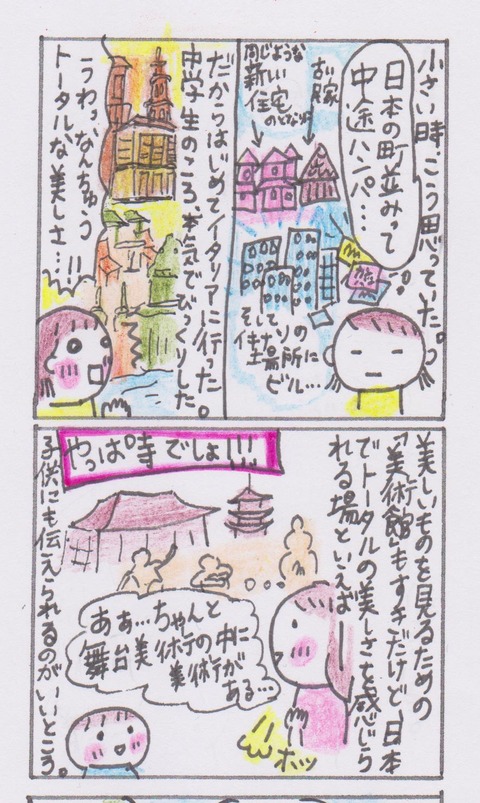 小さい時、こう思っていた。
日本の町並みって
中途ハンパ…
古い家
同じような
新しい
住宅
のとなり
そして
場所に
ビル…
だからはじめてイタリアに行った
中学生のころ、本気でびっくりした。
うわっ、なんちゅう
トータルな美しさ…!!
美しいものを見るための
「美術館」もすきだけど、日本
でトータルの美しさを感じら
れる場といえば
やっぱ時でしょ!!!
あぁ…ちゃんと
舞台美術の中に
美術が
ある…
ホッ
子供にも伝えられるのがいいところ。